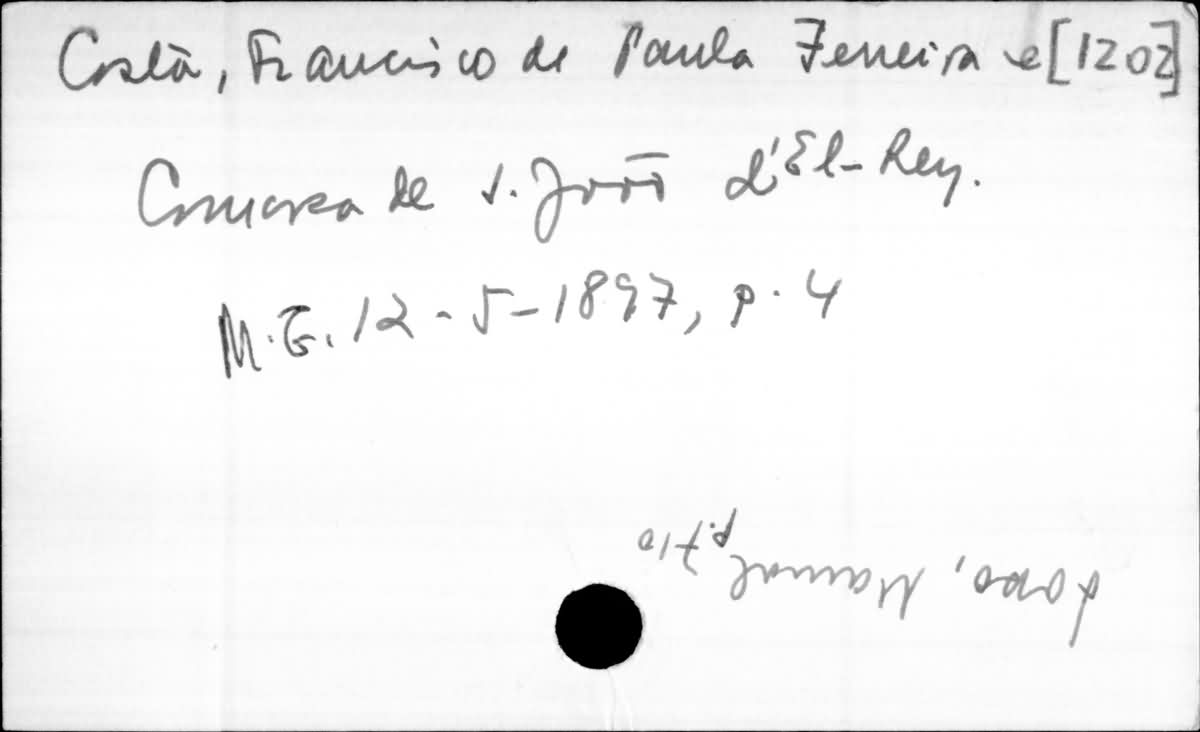 Costa, Francisco de Paula Ferreira e [1202]
Comarca de S. João d'El-Rey.
M.G. 12-5-1897, p. 4
p. 710